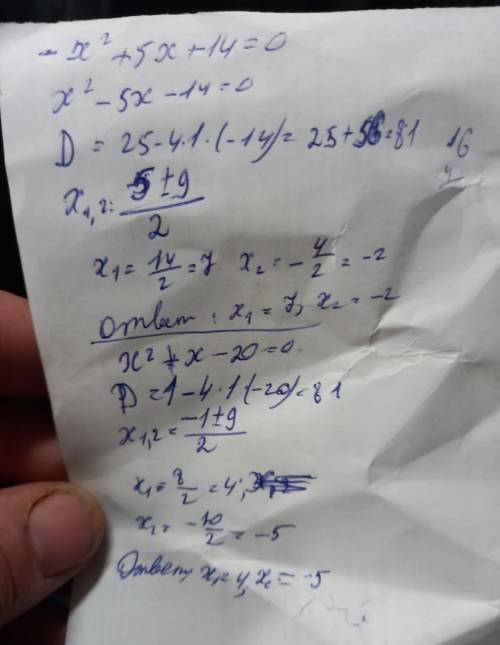 - x² + 5x + 14 = 0
x² - 5x - 14 = 0
D = 25 - 4·1·(-14) = 25 + 56 = 81 16
x₁,₂ = (5 ± 9)/2
x₁ = 14/2 = 7 x₂ = -4/2 = -2
Ответ: x₁ = 7, x₂ = -2
x² + x - 20 = 0
D = 1 - 4·1(-20) = 81
x₁,₂ = (-1 ± 9)/2
x₁ = 8/2 = 4;
x₂ = -10/2 = -5
Ответ x₁ = 4, x₂ = -5